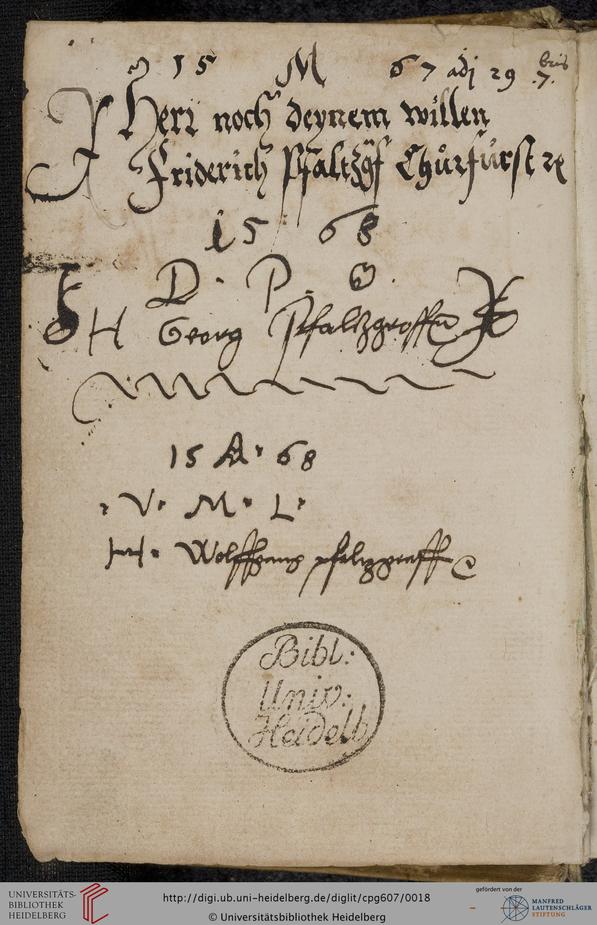 15 M 67 adj 29 .7. bris
Herr noch deynem willen
Friderich Pfaltzgf Churfürst
15 68
D. P.
H Georg Pfaltzgraff
15 A. 68
V. M. L.
H. Wolffgang pfaltzgraff
Bibl:
Univ:
Heidelb
UNIVERSITÄTS-
BIBLIOTHEK
HEIDELBERG
http://digi.ub.uni-heidelberg.de/diglit/cpg607/0018
© Universitätsbibliothek Heidelberg
gefördert von der
MANFRED
LAUTENSCHLÄGER
STIFTUNG